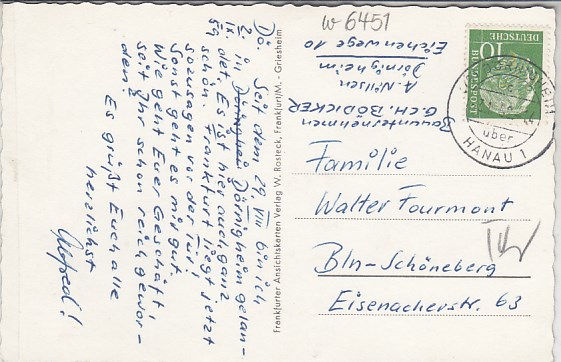 Dö.
2.
IX.
59
Seit dem 29. VIII bin ich
in Dörnigheim gelan-
det. Es ist hier auch ganz
schön. Frankfurt liegt jetzt
sozusagen vor der Tür!
Sonst geht es mir gut.
Wie geht Euer Geschäft?
Seit Ihr schon reich gewor-
den?
Es grüßt Euch alle
herzlichst
Alfred!
Frankfurter Ansichtskarten Verlag W. Rosteck, Frankfurt/M. - Griesheim
w 6451
Bauunternehmen
G.CH. BÖDICKER
A. Nilsen
Dörnigheim
Eichenwege 10
10
DEUTSCHE
BUNDESPOST
über
HANAU 1
Familie
Walter Fourmont
Bln-Schöneberg
Eisenacherstr. 63